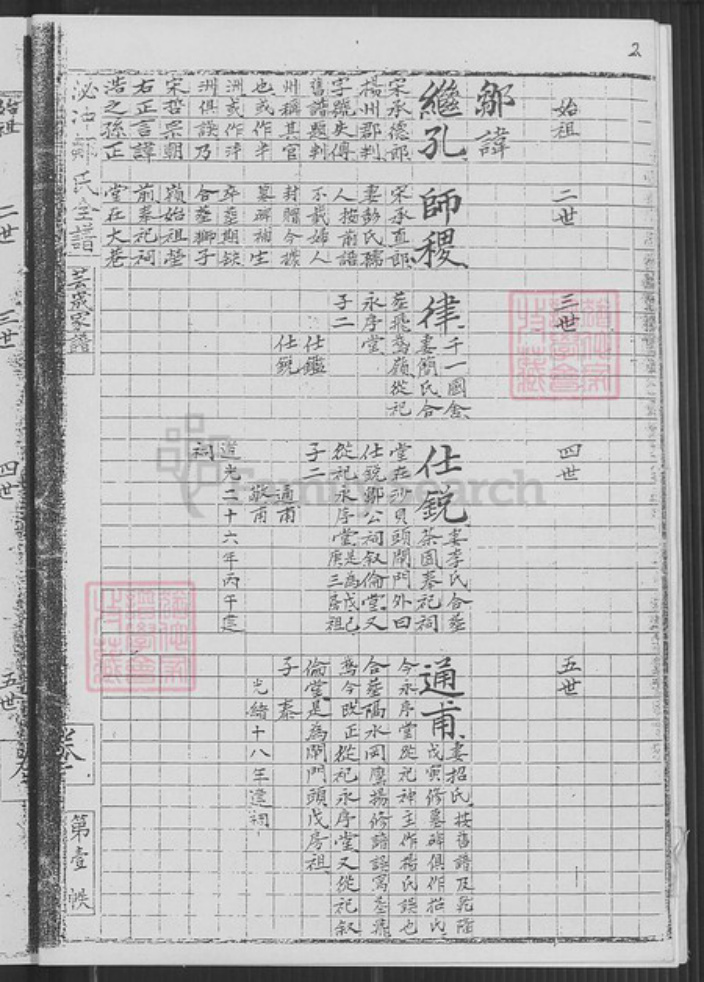 2
始祖
鄒諱
繼孔
宋承德郎
揚州郡判
字號失傳
舊譜題判
州稱其官
也或作半
洲或作泮
洲俱誤乃
宋哲宗朝
右正言諱
浩之孫正
二世
師稷
宋承直郎
妻彭氏孺
人按前譜
不載婦人
封贈今據
墓碑補生
卒塟期缺
合塟獅子
嶺始祖塋
前奉祀祠
堂在大巷
三世
律
千一國舍
妻簡氏合
塟飛鵞嶺從祀
永序堂
子二
仕鑑
仕銳
四世
仕銳
妻李氏合塟
茶園奉祀祠
堂在沙貝頭閘門外曰
仕銳鄒公祠叙倫堂又
從祀永序堂是為戊己
庚三房祖
子二
通甫
敬甫
道光二十六年丙午建
祠
五世
通甫
妻招氏按舊譜及乾隆
戊寅修墓碑俱作招氏
今永序堂從祀神主作楊氏誤也
合塟隔水岡鷹揚修譜誤寫塟飛
鵞今改正從祀永序堂又從祀叙
倫堂是為閘門頭戊房祖
子 泰
光緒十八年建祠
泌沖鄒氏全譜
芸歲家譜
卷一
第壹帙
始祖
二世
三世
四世
五世
FamilySearch